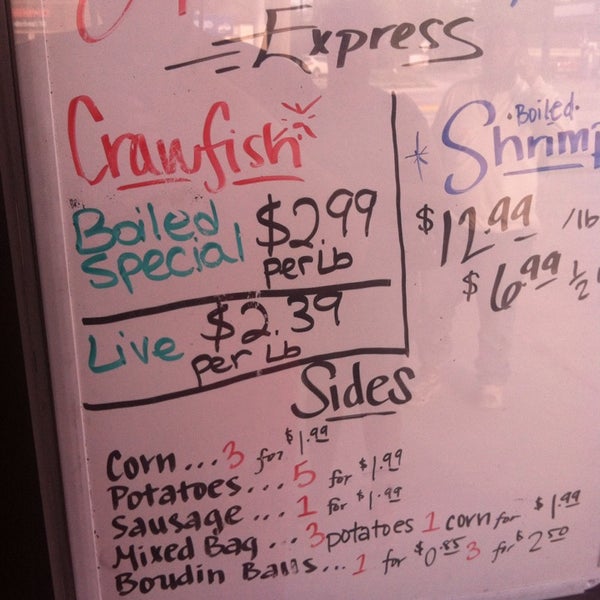 Express
Crawfish
Boiled
Special
$2.99
per Lb
Live
$2.39
per Lb
·Boiled·
Shrimp
$12.99 /lb
$6.99 1/2
Sides
Corn...3 for $1.99
Potatoes...5 for $1.99
Sausage...1 for $1.99
Mixed Bag...3 potatoes 1 corn for $1.99
Boudin Balls...1 for $0.85 3 for $2.50